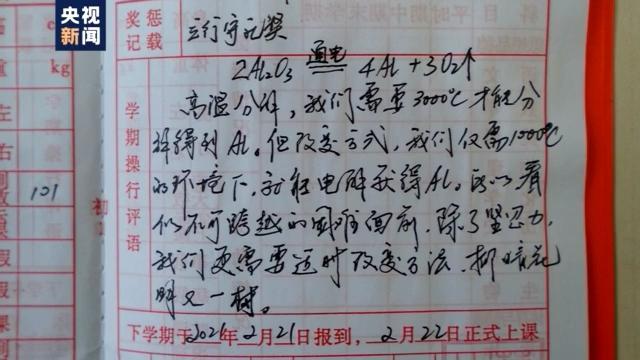 央视新闻
奖惩记载
立行守礼奖
2Al₂O₃ 通电 4Al + 3O₂↑
学期操行评语
高温分解，我们需要3000℃才能分
解得到Al。但改变方式，我们仅需1000℃
的环境下，就能电解获得Al。所以看
似不可跨越的困难面前，除了坚忍力，
我们更需要适时改变方法，柳暗花
明又一村。
下学期于2026年2月21日报到，2月22日正式上课
kg
左
右
101
初